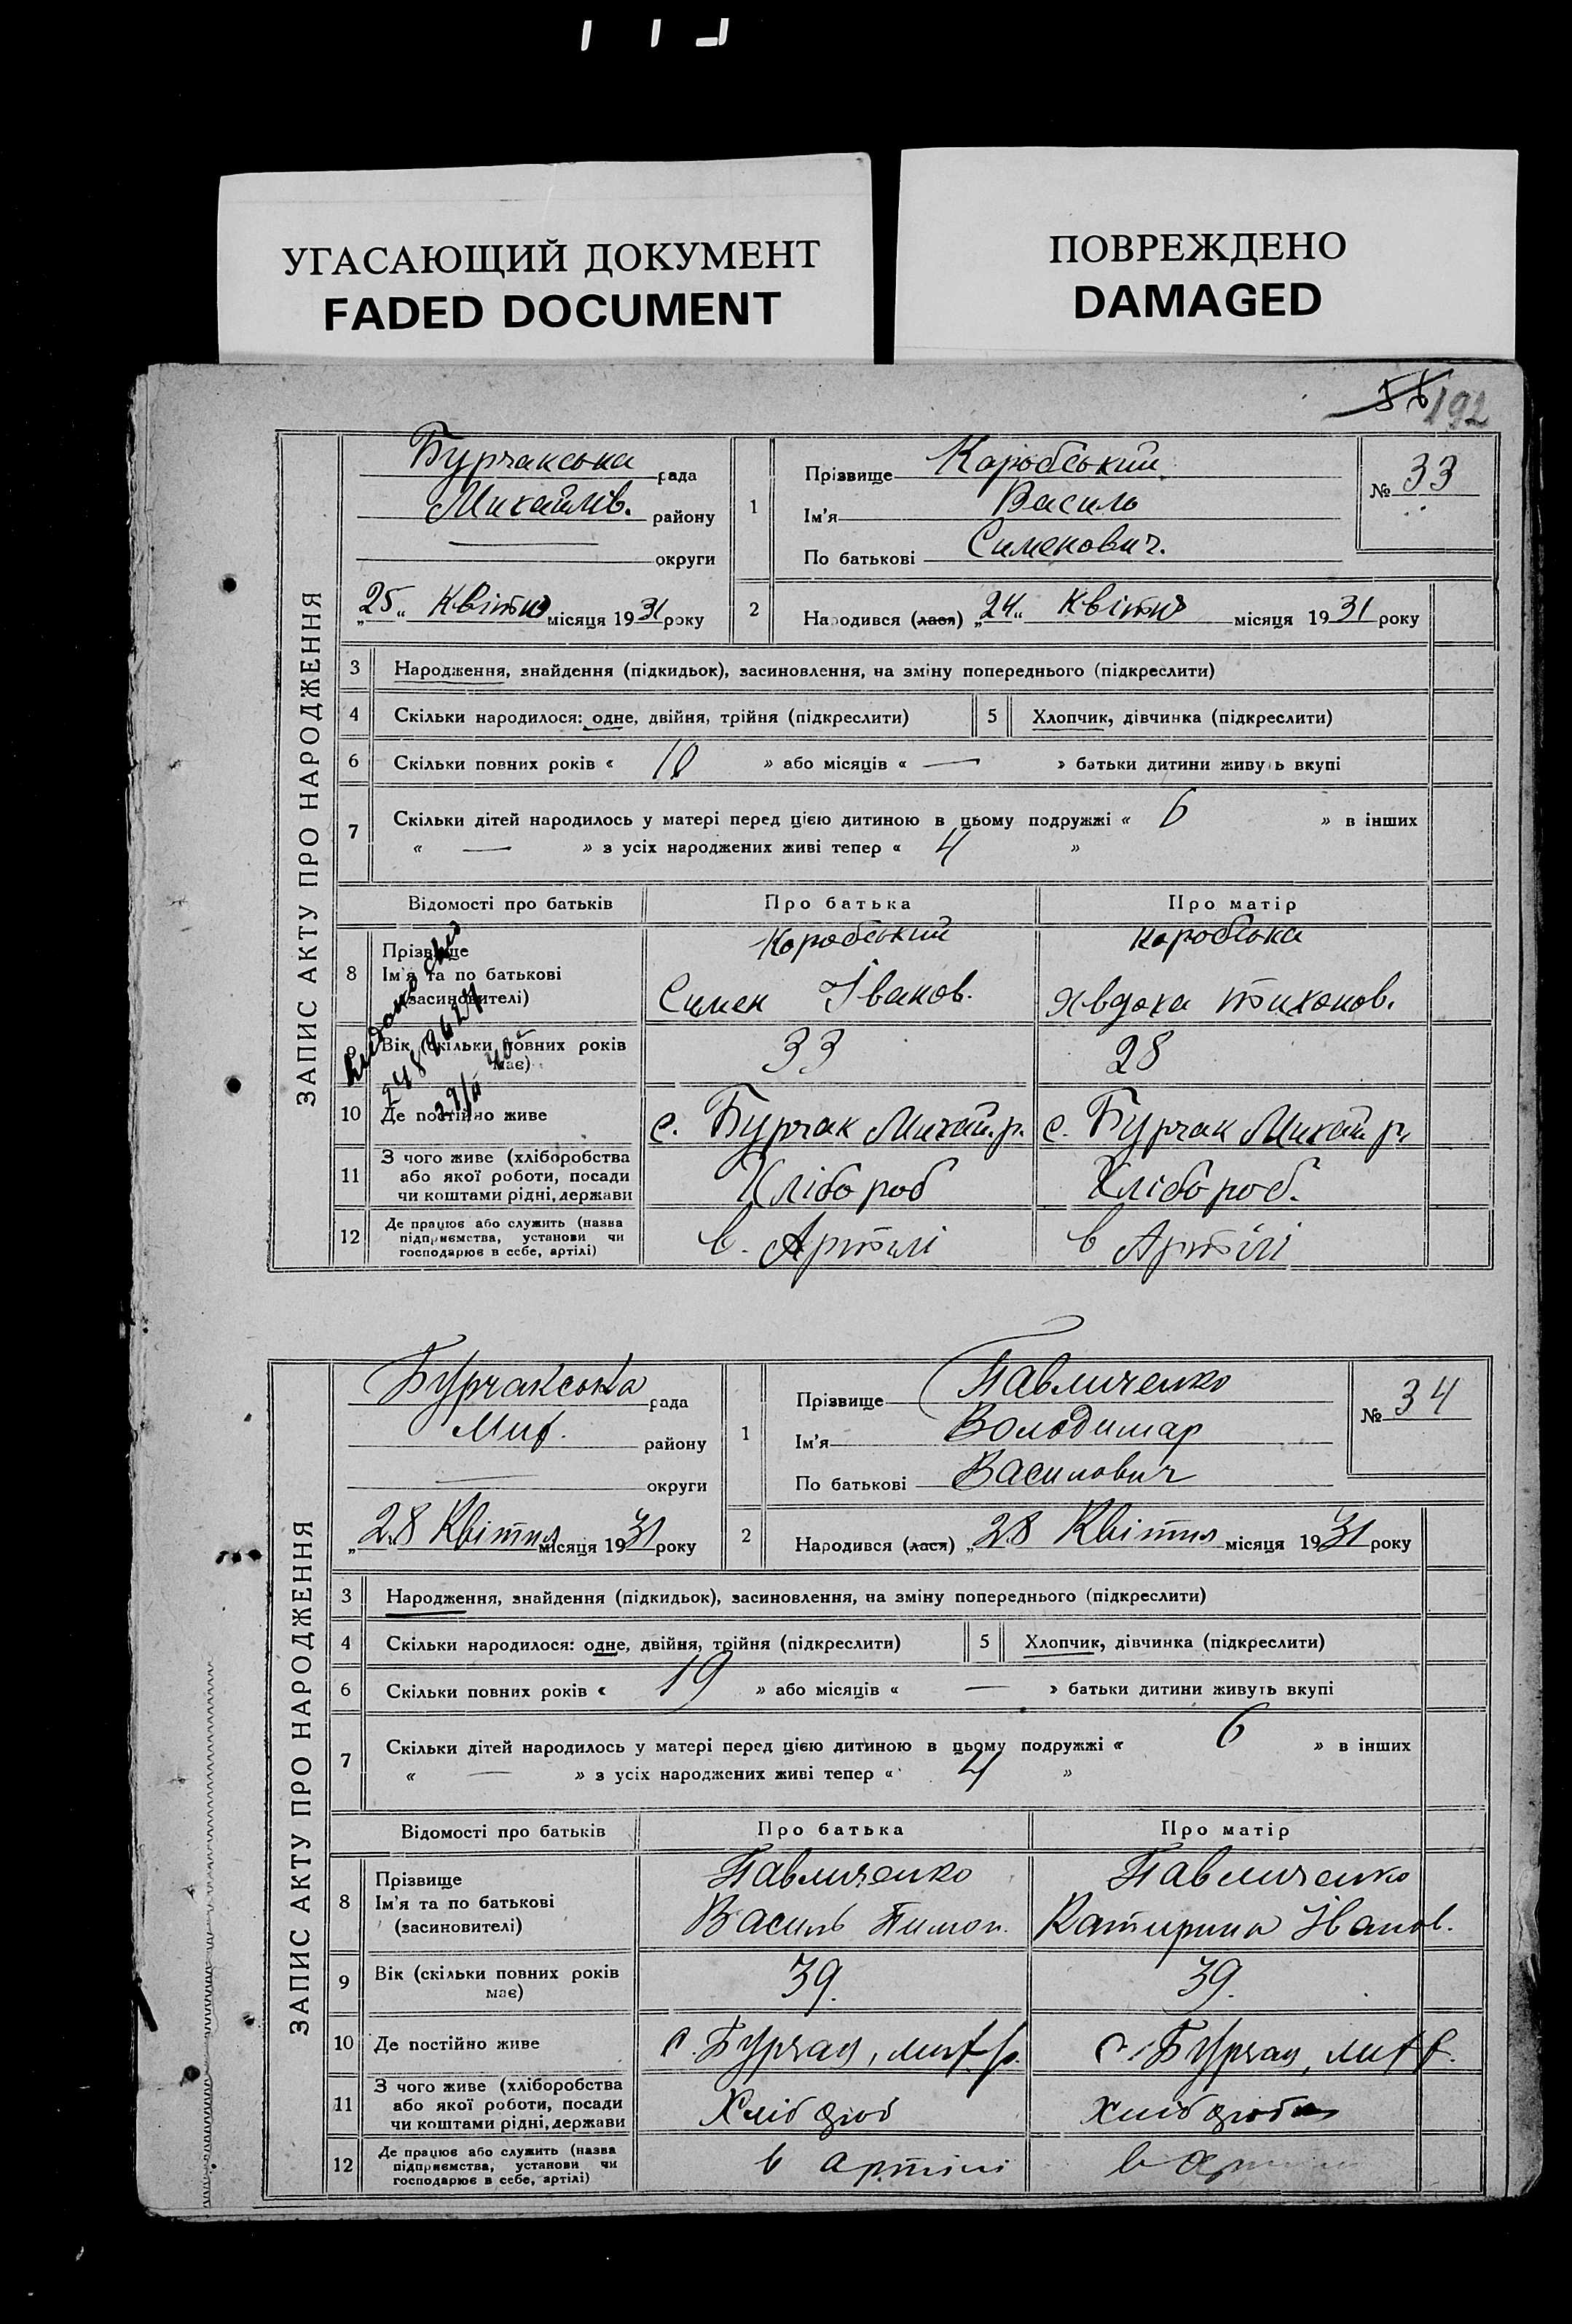 УГАСАЮЩИЙ ДОКУМЕНТ
FADED DOCUMENT
ПОВРЕЖДЕНО
DAMAGED
56 192
ЗАПИС АКТУ ПРО НАРОДЖЕННЯ
Бурчакська рада
Михайлів. району
— округи
„25“ Квітня місяця 1931 року
1
Прізвище Коробський
Ім'я Василь
По батькові Сименович.
№ 33
2 Народився (лася) „24“ Квітня місяця 1931 року
3 Народження, знайдення (підкидьок), засиновлення, на зміну попереднього (підкреслити)
4 Скільки народилося: одне, двійня, трійня (підкреслити) 5 Хлопчик, дівчинка (підкреслити)
6 Скільки повних років « 10 » або місяців « — » батьки дитини живуть вкупі
7 Скільки дітей народилось у матері перед цією дитиною в цьому подружжі « 6 » в інших
« — » з усіх народжених живі тепер « 4 »
Відомості про батьків Про батька Про матір
8 Прізвище Коробський Коробська
Ім'я та по батькові Симен Іванов. Явдоха Тихонов.
(засиновителі)
9 Вік (скільки повних років має) 33 28
10 Де постійно живе с. Бурчак Михай.р. с. Бурчак Михай р.
11 З чого живе (хліборобства або якої роботи, посади чи коштами рідні, держави Хлібороб Хлібороб.
12 Де працює або служить (назва підприємства, установи чи господарює в себе, артілі) в. Артилі в Артілі
ЗАПИС АКТУ ПРО НАРОДЖЕННЯ
Бурчакська рада
Мих. району
— округи
„28 Квітня місяця 1931 року
1
Прізвище Павличенко
Ім'я Володимар
По батькові Василович
№ 34
2 Народився (лася) „28 Квітня місяця 1931 року
3 Народження, знайдення (підкидьок), засиновлення, на зміну попереднього (підкреслити)
4 Скільки народилося: одне, двійня, трійня (підкреслити) 5 Хлопчик, дівчинка (підкреслити)
6 Скільки повних років « 19 » або місяців « — » батьки дитини живуть вкупі
7 Скільки дітей народилось у матері перед цією дитиною в цьому подружжі « 6 » в інших
« — » з усіх народжених живі тепер « 4 »
Відомості про батьків Про батька Про матір
8 Прізвище Павличенко Павличенко
Ім'я та по батькові Василь Пимон. Катирина Іванов.
(засиновителі)
9 Вік (скільки повних років має) 39. 39.
10 Де постійно живе с. Бурчак, мих р. с. Бурчак, мих р.
11 З чого живе (хліборобства або якої роботи, посади чи коштами рідні, держави Хлібороб хлібороб
12 Де працює або служить (назва підприємства, установи чи господарює в себе, артілі) в артілі в